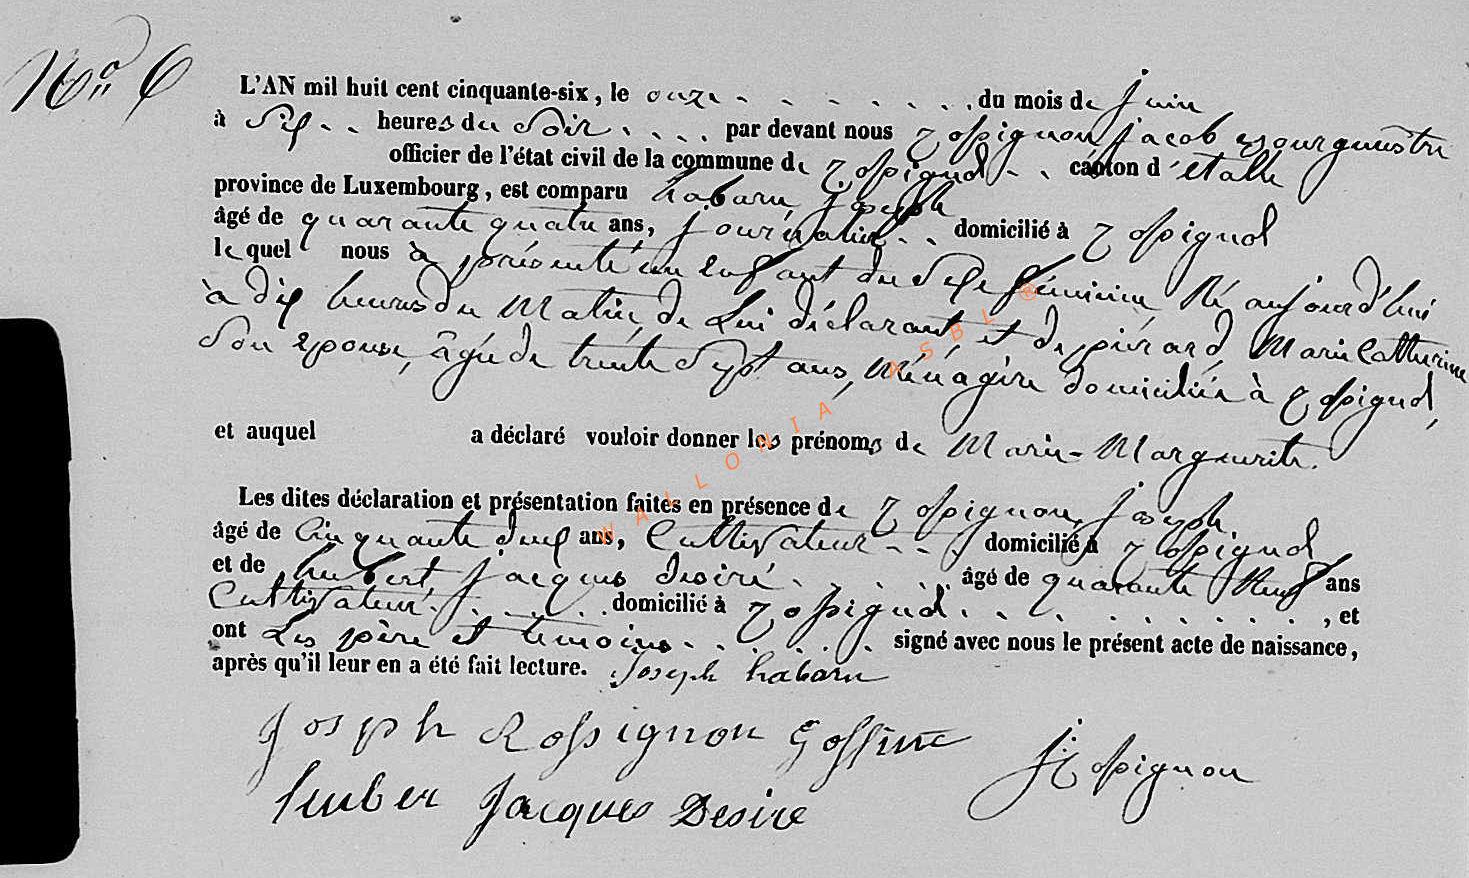 No 6
L'AN mil huit cent cinquante-six, le onze du mois de juin
à six heures du Soir par devant nous Rossignon jacob Bourguestre
officier de l'état civil de la commune de Rossignol canton d'étalle
province de Luxembourg, est comparu habaru joseph
âgé de quarante quatre ans, journalier domicilié à Rossignol
lequel nous à présenté un enfant du Sexe féminin Né aujourd'hui
à dix heures du Matin, de Lui déclarant et de piérard, Marie Catherine
Son Epouse, âgée de trente Sept ans, Ménagère domiciliée à Rossignol,
et auquel a déclaré vouloir donner les prénoms de Marie-Marguerite.
Les dites déclaration et présentation faites en présence de Rossignon, joseph,
âgé de Cinquante deux ans, Cultivateur domicilié à Rossignol
et de hubert jacques desiré âgé de quarante Neuf ans
Cultivateur domicilié à Rossignol, et
ont Les père et temoins signé avec nous le présent acte de naissance,
après qu'il leur en a été fait lecture. Joseph habaru
Joseph Rossignon Goffinet
J Rossignon
huber Jacques Desire
WALLONIA ASBL ®